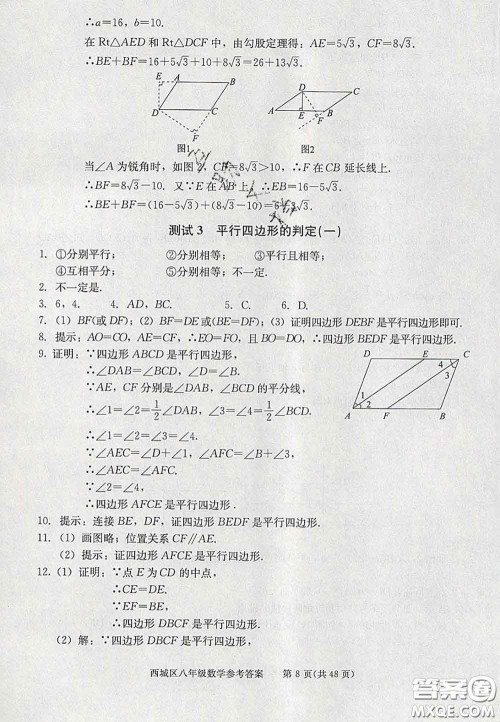 ∴a=16，b=10.
在 Rt△AED 和 Rt△DCF 中，由勾股定理得：AE=5√3，CF=8√3.
∴BE+BF=16+5√3+10+8√3=26+13√3.
E A B
D C
F
图1
D C
A E B
F
图2
当∠A 为锐角时，如图2，CF=8√3>10，∴F 在 CB 延长线上.
∴BF=8√3-10. 又∵E 在 AB 上，∴EB=16-5√3.
∴BE+BF=(16-5√3)+(8√3-10)=6+3√3.
测试 3 平行四边形的判定(一)
1. ①分别平行； ②分别相等； ③平行且相等；
④互相平分； ⑤分别相等；
2. 不一定是.
3. 6，4. 4. AD，BC. 5. C. 6. D.
7. (1) BF(或 DF)；(2) BF=DE 或(BE=DF)；(3) 证明四边形 DEBF 是平行四边形即可.
8. 提示：AO=CO，AE=CF，∴EO=FO，且 BO=DO，∴四边形 BFDE 是平行四边形.
9. 证明：∵四边形 ABCD 是平行四边形，
∴∠DAB=∠BCD，∠D=∠B.
∵AE，CF 分别是∠DAB、∠BCD 的平分线，
∴∠1=∠2=1/2∠DAB，∠3=∠4=1/2∠BCD.
∴∠1=∠2=∠3=∠4.
∵∠AEC=∠D+∠1，∠AFC=∠B+∠3，
∴∠AEC=∠AFC.
∵∠2=∠4，
∴四边形 AFCE 是平行四边形.
D E C
4
3
1
2
A F B
10. 提示：连接 BE，DF，证四边形 BEDF 是平行四边形.
11. (1) 画图略；位置关系 CF∥AE.
(2) 提示：证四边形 AFCE 是平行四边形.
12. (1) 证明：∵点 E 为 CD 的中点，
∴CE=DE.
∵EF=BE，
∴四边形 DBCF 是平行四边形.
(2) 解：∵四边形 DBCF 是平行四边形，
西城区八年级数学参考答案 第 8 页(共 48 页)
答案圈
MXQE.COM